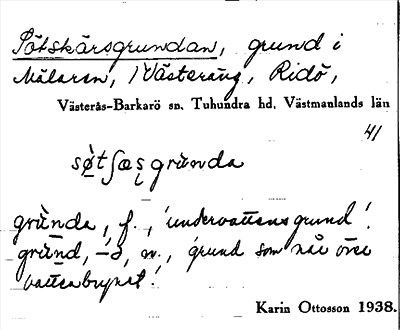 Sötskärsgrundan, grund i
Mälaren, Västeräng, Ridö,
Västerås-Barkarö sn. Tuhundra hd. Västmanlands län
41
grùnda, f., 'undervattensgrund'.
grúnd, -ə, n., 'grund som når över
vattenbrynet'.
Karin Ottosson 1938.